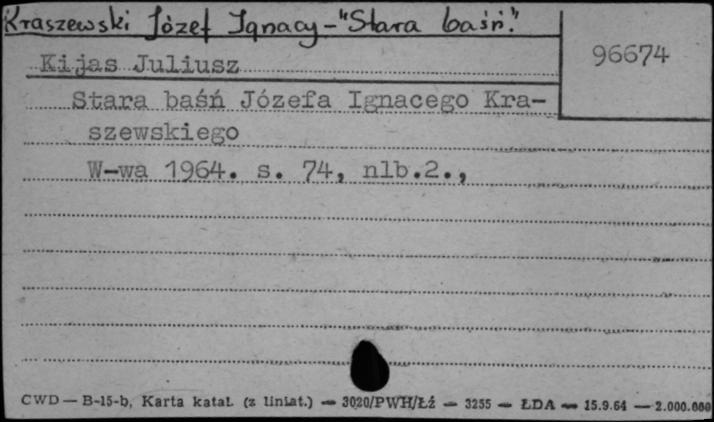 Kraszewski Józef Ignacy - "Stara baśń."
96674
Kijas Juliusz
Stara baśń Józefa Ignacego Kra-
szewskiego
W-wa 1964. s. 74, nlb.2.,
CWD — B-15-b, Karta katal. (z liniat.) — 3020/PWH/Łź — 3255 — ŁDA — 15.9.64 — 2.000.000